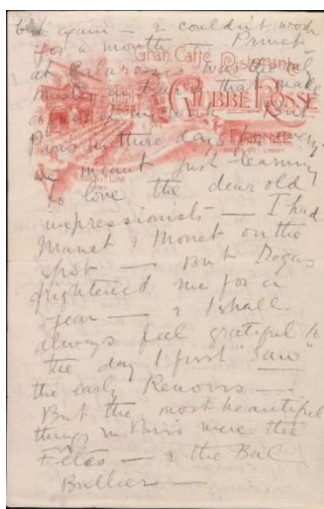 but again — & couldn't work
for a month —
Gran Caffè Ristorante
Giubbe Rosse
Firenze
at was the
Paris in those days for every
meant just learning
to love the dear old
impressionists — I had
Manet & Monet on the
spot — But Degas
frightened me for a
year — & I shall
always feel grateful to
the day I first "Saw"
the early Renoirs —
But the most beautiful
things in Paris were the
Fêtes — & the Bal
Bullier —